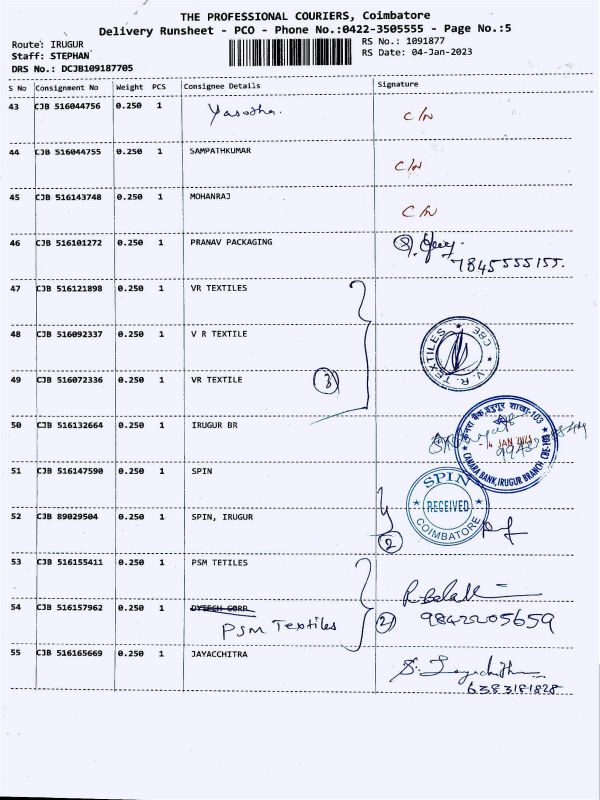 THE PROFESSIONAL COURIERS, Coimbatore
Delivery Runsheet - PCO - Phone No.:0422-3505555 - Page No.:5
Route: IRUGUR
RS No.: 1091877
Staff: STEPHAN
RS Date: 04-Jan-2023
DRS No.: DCJB109187705
S No Consignment No Weight PCS Consignee Details Signature
43 CJB 516044756 0.250 1 Yasodha. C/N
44 CJB 516044755 0.250 1 SAMPATHKUMAR C/N
45 CJB 516143748 0.250 1 MOHANRAJ C/N
46 CJB 516101272 0.250 1 PRANAV PACKAGING
7845555155.
47 CJB 516121898 0.250 1 VR TEXTILES
48 CJB 516092337 0.250 1 V R TEXTILE
V. R. TEXTILES CBE
49 CJB 516072336 0.250 1 VR TEXTILE
3
50 CJB 516132664 0.250 1 IRUGUR BR
केनरा बैंक, इरुगुर शाखा-103
4 JAN 2023
CANARA BANK, IRUGUR BRANCH CBE-103
51 CJB 516147590 0.250 1 SPIN
SPIN
RECEIVED
COIMBATORE
52 CJB 89029504 0.250 1 SPIN, IRUGUR
2
53 CJB 516155411 0.250 1 PSM TETILES
54 CJB 516157962 0.250 1 DYTECH CORP
PSM Textiles 2 9842205659
55 CJB 516165669 0.250 1 JAYACCHITRA
6383181828